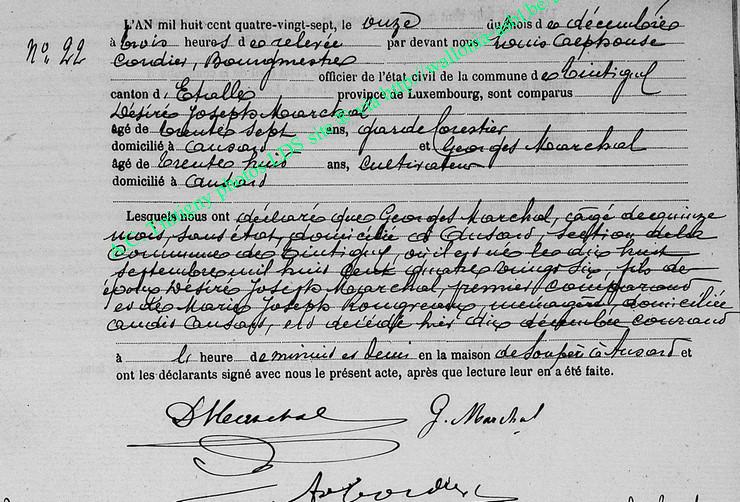 L'AN mil huit cent quatre-vingt-sept, le onze du mois de décembre
N° 22 à trois heures de relevée par devant nous Louis Alphonse
Cordier, Bourgmestre officier de l'état civil de la commune de Tintigny
canton d'Etalle province de Luxembourg, sont comparus
Désiré Joseph Marchal
âgé de trente sept ans, garde forestier
domicilié à Ansart et Georges Marchal
âgé de trente huit ans, cultivateur
domicilié à Ansart
Lesquels nous ont déclaré que Georges Marchal, âgé de quinze
mois, sans état, domicilié à Ansart, section de la
commune de Tintigny, où il est né le dix huit
septembre mil huit cent quatre vingt six, fils de
époux Désiré Joseph Marchal, premier comparant
et de Marie Joseph Rongveaux, ménagère domiciliée
audit Ansart, est décédé hier dix décembre courant
à heure de minuit et demi en la maison à Ansart et
ont les déclarants signé avec nous le présent acte, après que lecture leur en a été faite.
D Marchal G. Marchal
Cordier